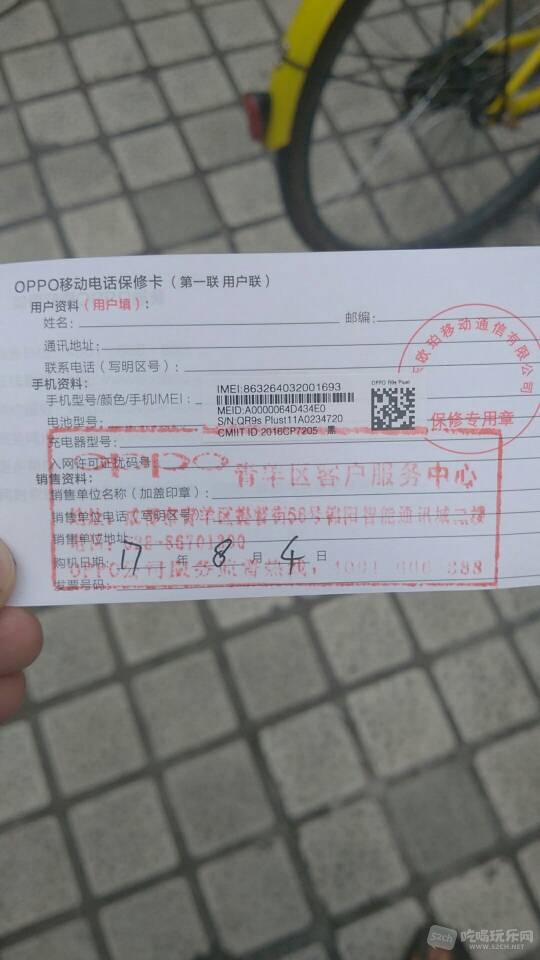 OPPO移动电话保修卡（第一联 用户联）
用户资料（用户填）：
姓名： 邮编：
通讯地址：
联系电话（写明区号）：
手机资料：
手机型号/颜色/手机IMEI：
IMEI:863264032001693
MEID:A0000064D434E0
S/N:QR9s Plust11A0234720
CMIIT ID 2016CP7205 黑
OPPO R9s Plust
欧珀移动通信有限公司
保修专用章
电池型号：
充电器型号：
入网许可证扰码号
oppo 青羊区客户服务中心
销售资料：
销售单位名称（加盖印章）：
销售单位电话（写明区号）
销售单位地址：
购机日期： 17 年 8 月 4 日
发票号码：
吃喝玩乐网
WWW.52CH.NET